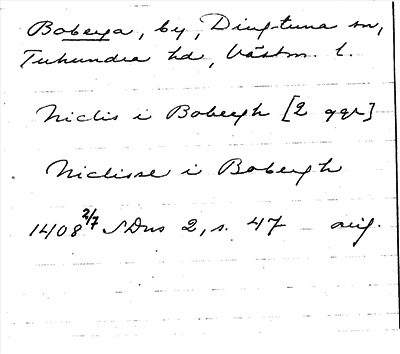 Boberga, by, Dingtuna sn,
Tuhundra hd, Västm. l.
Niclis i Bobergh [2 ggr]
Niclisse i Bobergh
1408 2/7 SDns 2, s. 47 orig.